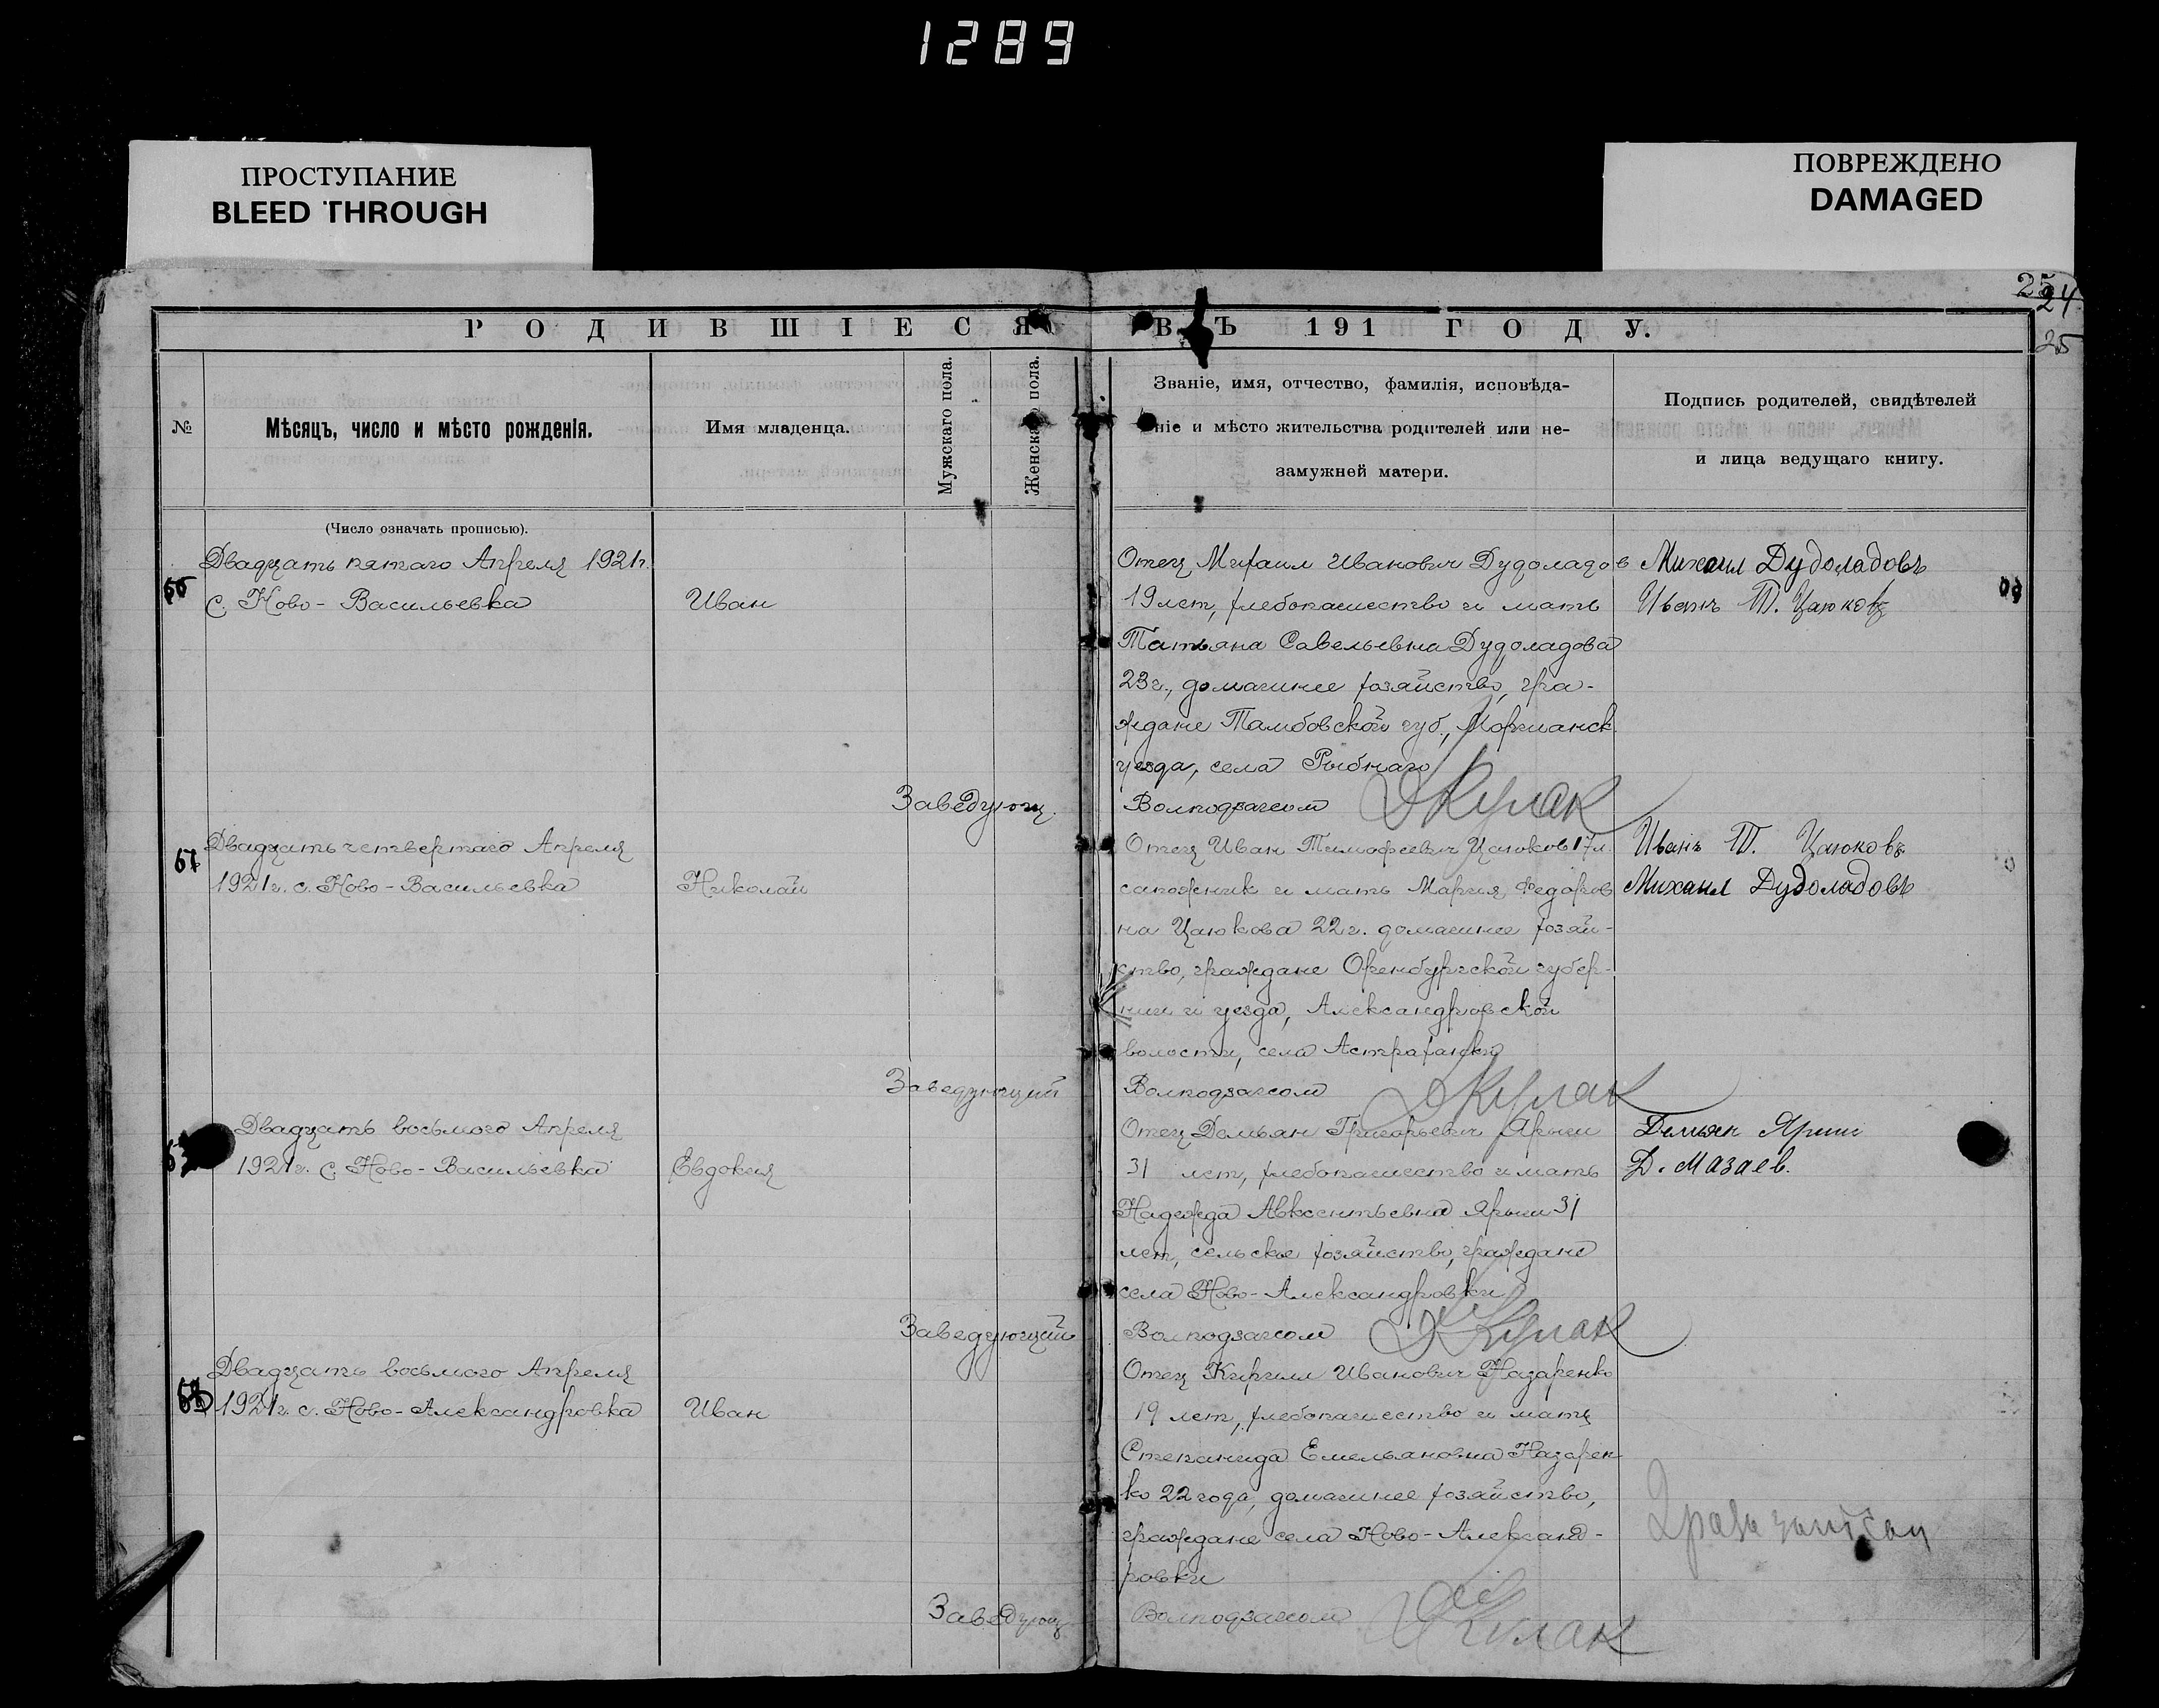 1289
ПРОСТУПАНИЕ
BLEED THROUGH
ПОВРЕЖДЕНО
DAMAGED
25
24
25
РОДИВШІЕСЯ ВЪ 191 ГОДУ.
№
Мѣсяцъ, число и мѣсто рожденія.
Имя младенца.
Мужскаго пола.
Женска пола.
Званіе, имя, отчество, фамилія, исповѣда-
ніе и мѣсто жительства родителей или не-
замужней матери.
Подпись родителей, свидѣтелей
и лица ведущаго книгу.
(Число означать прописью).
Двадцать пятаго Апреля 1921г.
с. Ново-Васильевка
Иван
Отец Михаил Иванович Дудоладов
19 лет, хлебопашество и мать
Татьяна Савельевна Дудоладова
23г., домашнее хозяйство, гра-
ждане Тамбовской губ., Моршанск.
уезда, села Рыбнаго
Заведующ. Волподзагсом Кулак
Михаил Дудоладовъ
Иванъ Т. Цаюковъ
67
Двадцать четвертаго Апреля
1921г. с. Ново-Васильевка
Николай
Отец Иван Тимофеевич Цаюков 17 л.
сапожник и мать Мария Федоров
на Цаюкова 22г. домашнее хозяй-
ство, граждане Оренбургской губер-
нии и уезда, Александровской
волости, села Астраханки
Заведующий Волподзагсом Кулак
Иванъ Т. Цаюковъ
Михаил Дудоладовъ
Двадцать восьмого Апреля
1921г. с. Ново-Васильевка
Евдокия
Отец Демьян Григорьевич Ярыш
31 лет, хлебопашество и мать
Надежда Авксентьевна Ярыш 31
лет, сельское хозяйство, граждане
села Ново-Александровки
Заведующий Волподзагсом Кулак
Демьян Яриш
Д. Мазаев.
Двадцать восьмого Апреля
1921г. с. Ново-Александровка
Иван
Отец Кирилл Иванович Назаренко
19 лет, хлебопашество и мать
Степанида Емельяновна Назарен
ко 22 года, домашнее хозяйство,
граждане села Ново-Александ-
ровки
Заведующ Волподзагсом Кулак
2 раза записан